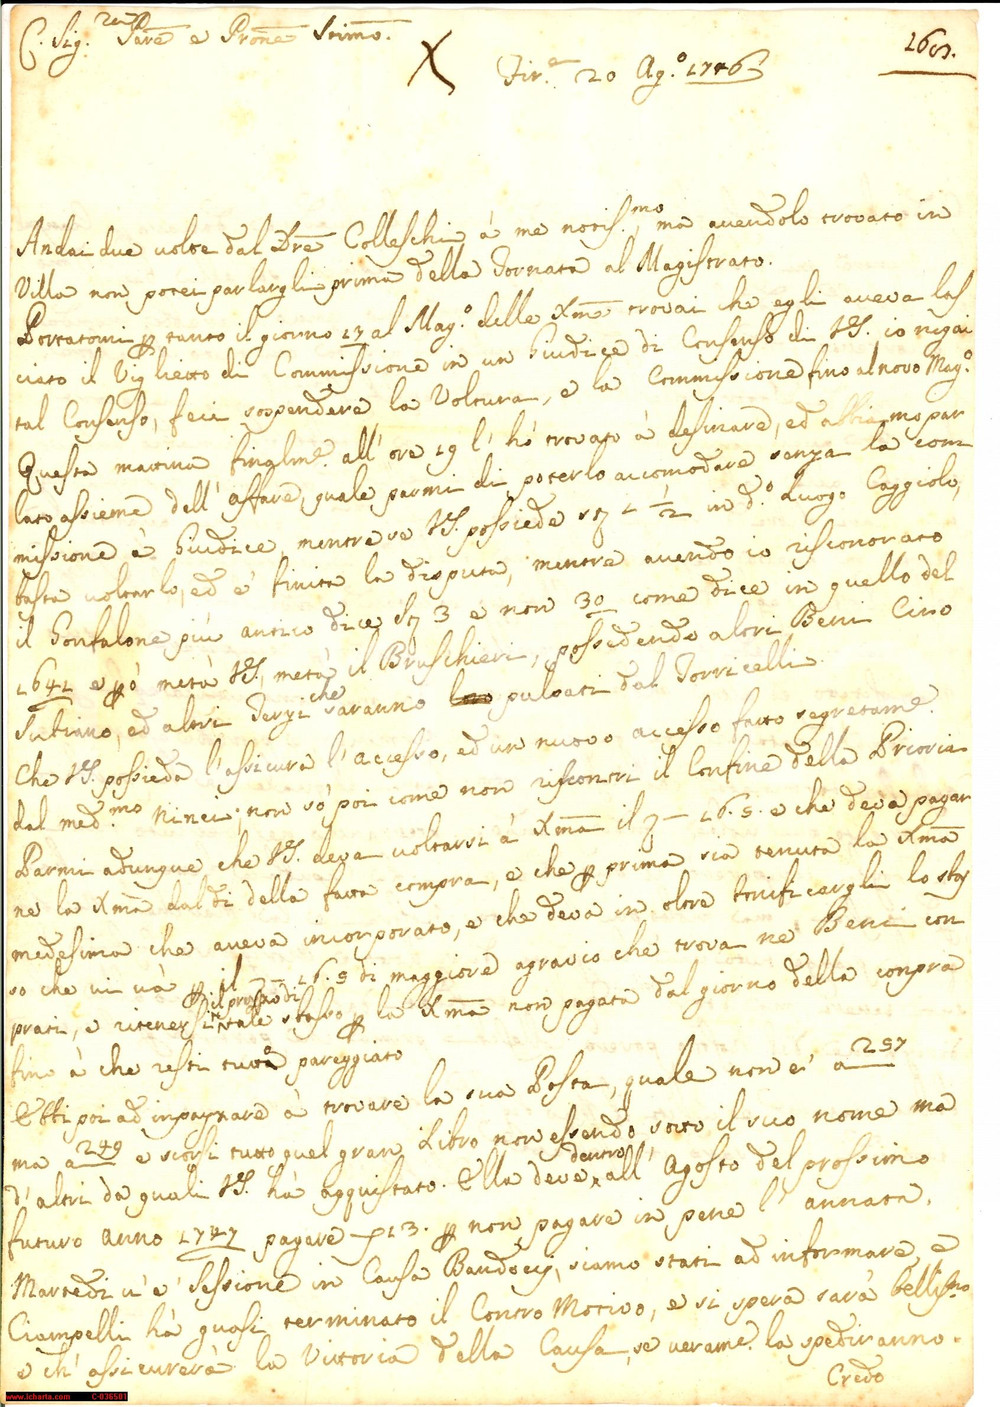 C. Sig. Pare e Prone Stimo.
Fir.e 20 Ag.o 1746
Andai due volte dal Dre Colleschi à me notis.mo, ma avendolo trovato in
Villa non potei parlargli prima della Tornata al Magistrato.
Portatomi per tanto il giorno 17 al Mag.o delle Xme trovai che egli aveva las
ciato il Viglietto di Commissione in un Giudice di Consenso di VS. io negai
tal Consenso, feci sospendere la Voltura, e la Commissione fino al novo Mag.o
Questa mattina finalme. all' ore 19 l' hò trovato à desinare, ed abbiamo par
lato assieme dell' affare, quale parmi di poterlo accomodare senza la com
missione è Giudice, mentre se VS. possiede 1 1/2 in d.o Luogo Caggiolo,
basta voltarlo, ed è finita la disputa, mentre avendo io riscontrato
il Gonfalone più antico dice 3 e non 30 come dice in quello del
1641 e però metà VS. metà il Bruschieri, possedendo altri Beni Cino
ed altri Terzi che saranno pulsati dal Torricelli
Che VS. possieda l'assicura l'accesso, ed un nuovo accesso fatto segretame.
dal med.mo Ninci; non sò poi come non riscontri il Confine della Prioria
Parmi adunque che VS. deva voltarsi à Xma il 16.5. e che deva pagar
ne la Xma dal dì della fatta compra, e che per prima sia tenuta la Xma
medesima che aveva incorporato, e che deva in oltre bonificargli lo stes
so che vi và per il 16.5 di maggiore agravio che trova ne Beni com
prati, e ritenersi il pro di tale stesso per la Xma non pagata dal giorno della compra
fino à che resti tutto pareggiato
Ebbi poi ad inpazzare à trovare la sua Posta, quale non è a 257
ma a 249 e scorsi tutto quel gran Libro non essendo sotto il suo nome ma
d'altri da quali VS. hà acquistato. Ella deve dentro all' Agosto del prossimo
futuro anno 1747 pagare 13. per non pagare in pene l'annata.
Martedì v'è Sessione in Causa Bandocci, siamo stati ad informare, e
Ciampelli hà quasi terminato il Contro Motivo, e si spera sarà bellis.mo,
e ch' assicurerà la Vittoria della Causa, se verame. la spediranno.
Credo
www.icharta.com C-036501